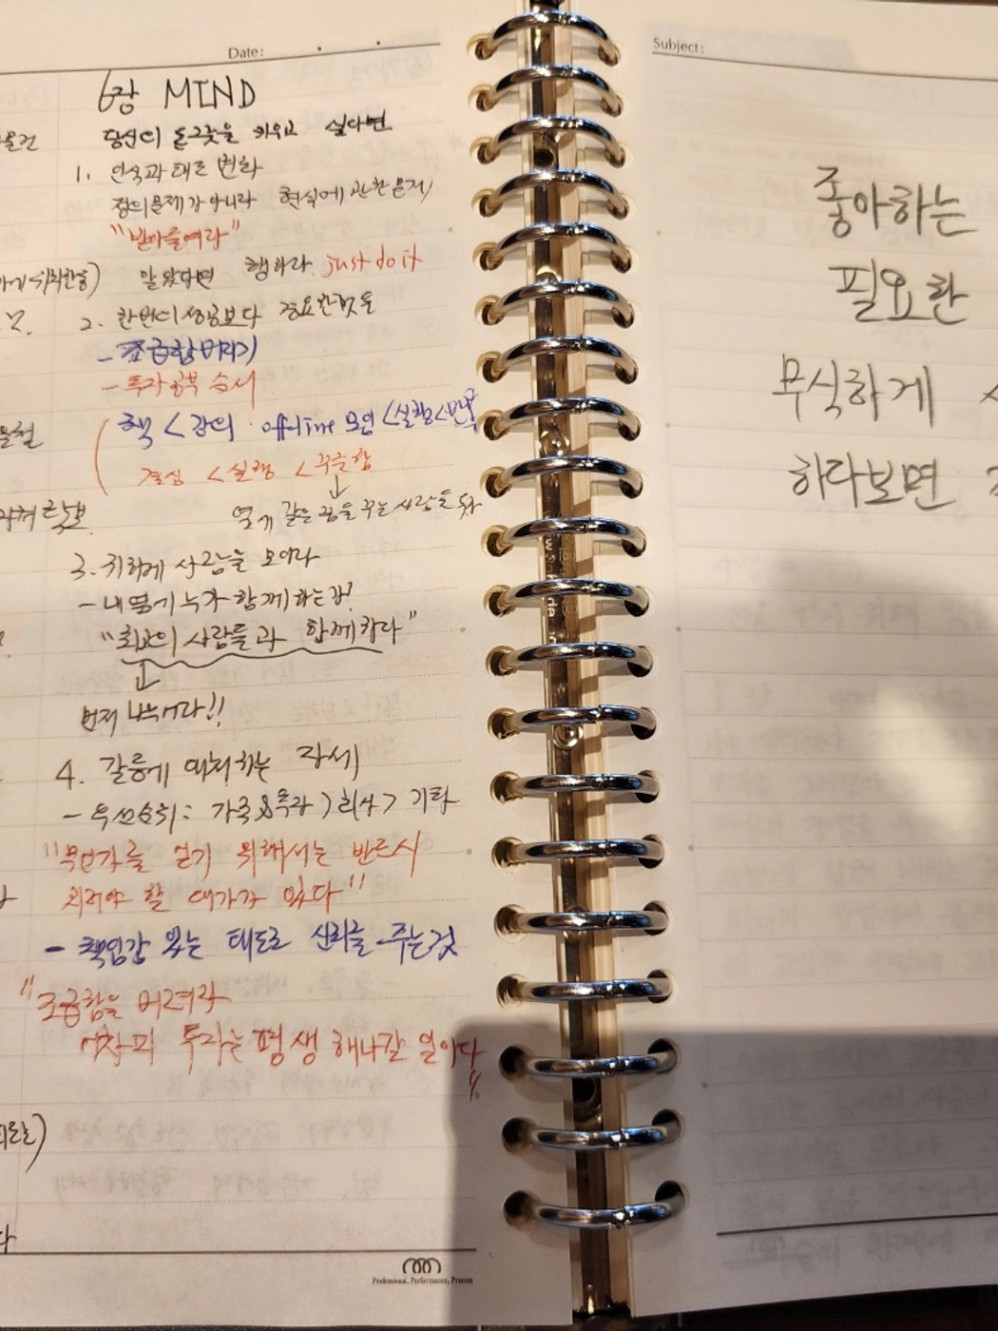 Date:
6장 MIND
당신이 돈그릇을 키우고 싶다면
1. 인식과 태도 변화
돈의 문제가 아니라 현실에 관한 문제
"받아들여라"
알았다면 행하라. just do it
2. 한번의 성공보다 중요한것들
- 조급함 버리기
- 투자 공부 순서
책 < 강의 · offline 모임 < 실행 <
결심 < 실행 < 꾸준함
같은 꿈을 꾸는 사람들
3. 귀하게 사람을 모아라
- 내 옆에 누가 함께 하는가?
"최고의 사람들과 함께하라"
먼저 나누어라!!
4. 갈등에 대처하는 자세
- 우선순위: 가족 > 회사 > 기타
"무언가를 얻기 위해서는 반드시
치러야 할 대가가 있다"
- 책임감 있는 태도로 신뢰를 주는것
"조급함을 버려라
어차피 투자는 평생 해나갈 일이다"
Professional, Performances, Process
Subject:
좋아하는
필요한
무식하게
하다보면